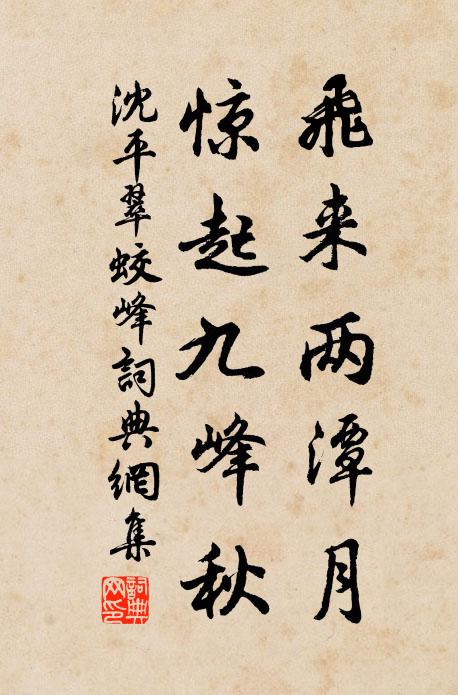 飛来两潭月
惊起九峰秋
沈平翠蛟峰詞典網集
詞典網印